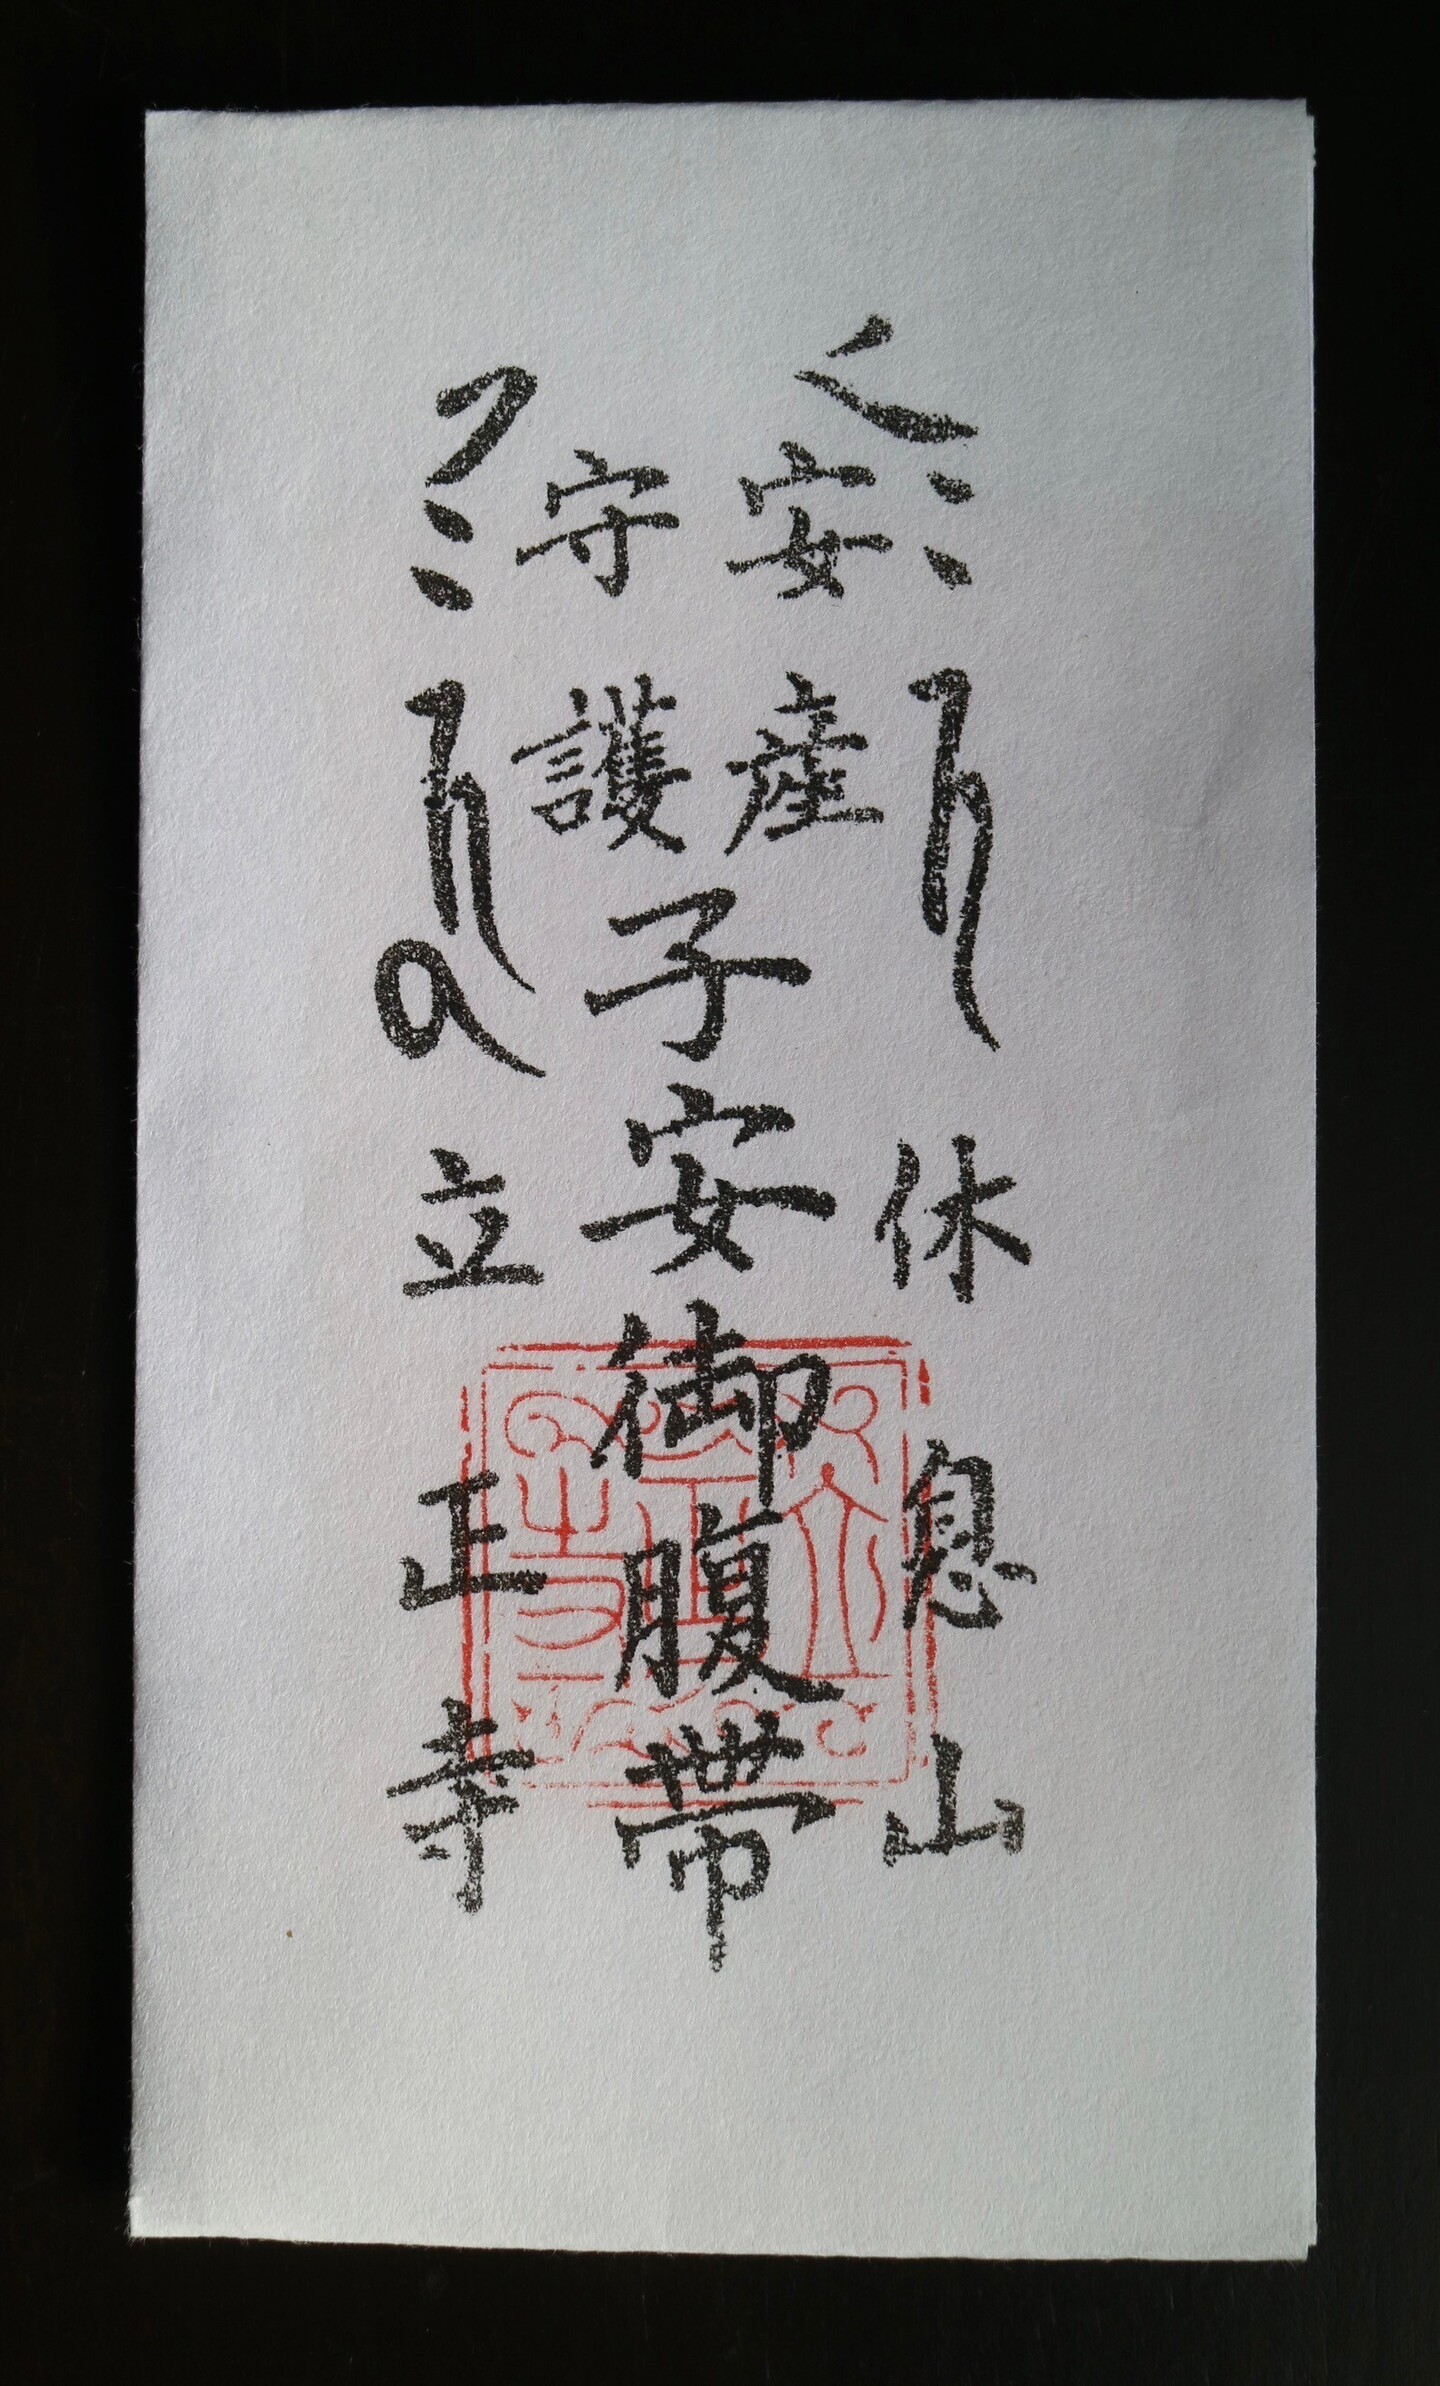 休息山
安産
守護
子安御腹帯
立正寺